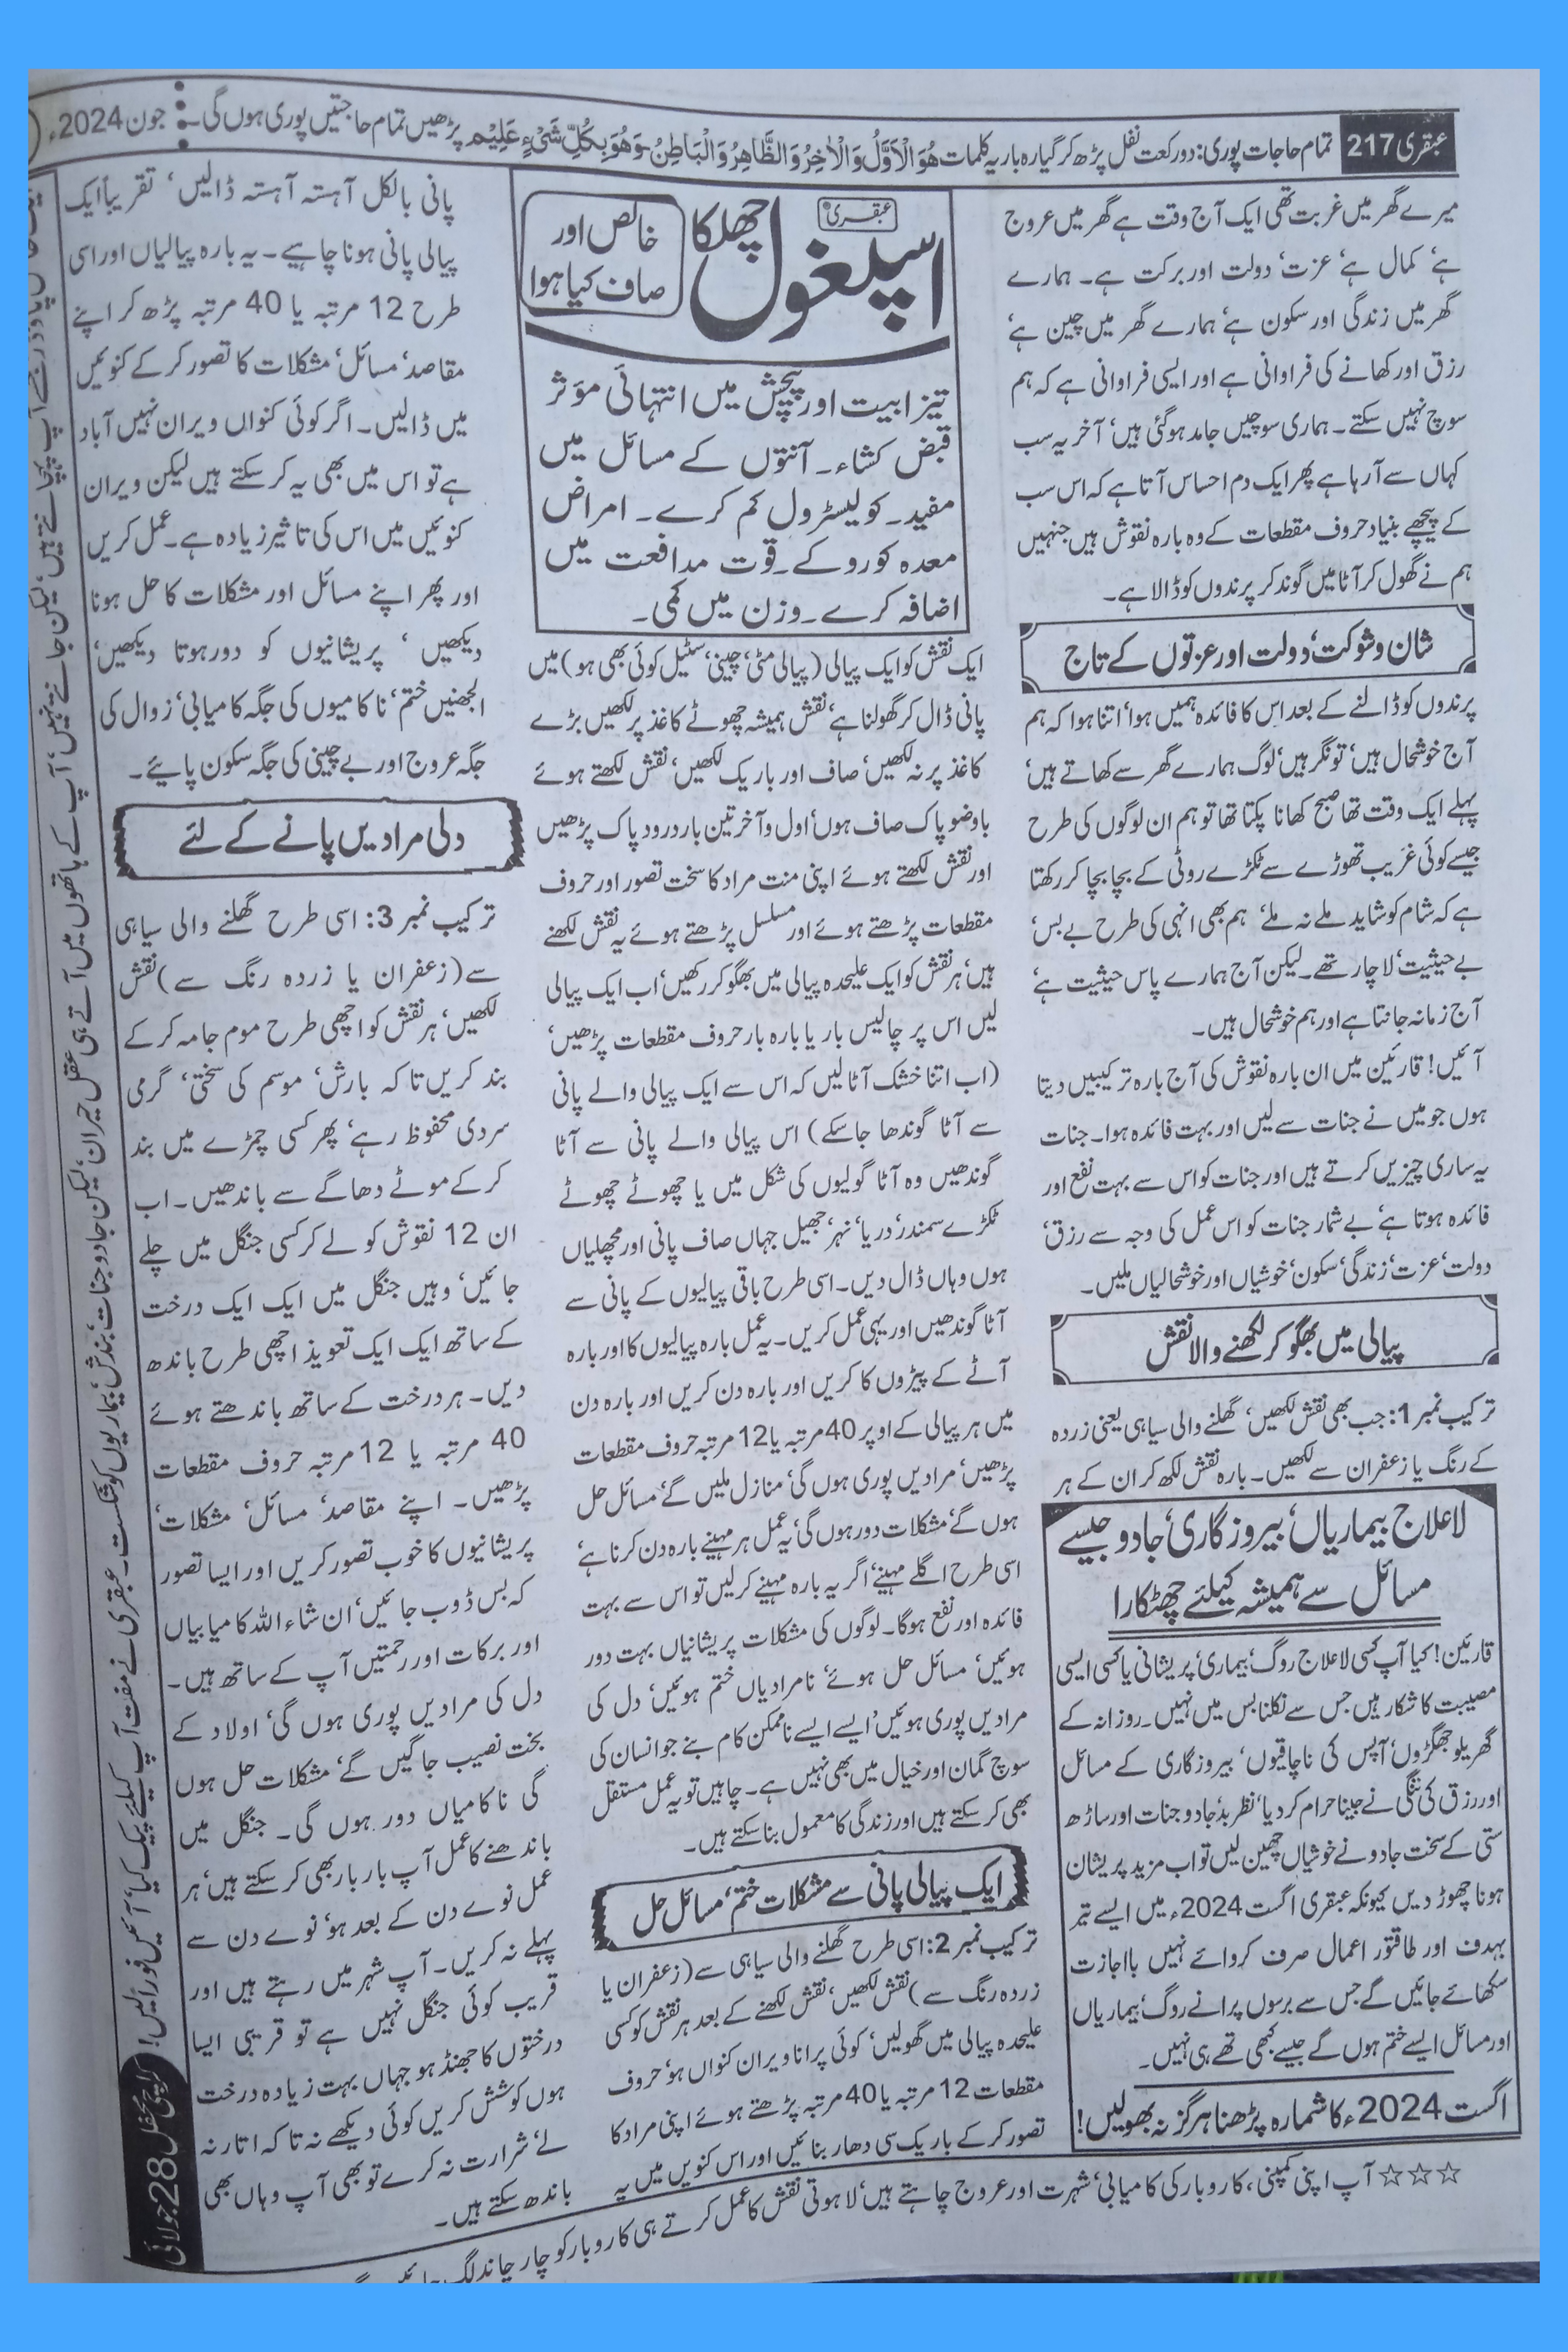 عبقری 217
تمام حاجات پوری: دو رکعت نفل پڑھ کر گیارہ بار یہ کلمات هُوَ الْاَوَّلُ وَالْاٰخِرُ وَالظَّاهِرُ وَالْبَاطِنُ وَهُوَ بِكُلِّ شَيْءٍ عَلِيْم پڑھیں تمام حاجتیں پوری ہوں گی۔
جون 2024ء
میرے گھر میں غربت تھی ایک آج وقت ہے گھر میں عروج
ہے‘ کمال ہے‘ عزت‘ دولت اور برکت ہے۔ ہمارے
گھر میں زندگی اور سکون ہے‘ ہمارے گھر میں چین ہے‘
رزق اور کھانے کی فراوانی ہے اور ایسی فراوانی ہے کہ ہم
سوچ نہیں سکتے۔ ہماری سوچیں جامد ہوگئی ہیں‘ آخر یہ سب
کہاں سے آرہا ہے پھر ایک دم احساس آتا ہے کہ اس سب
کے پیچھے بنیاد حروف مقطعات کے وہ بارہ نقوش ہیں جنہیں
ہم نے گھول کر آٹا میں گوند کر پرندوں کو ڈالا ہے۔
شان و شوکت‘ دولت اور عزتوں کے تاج
پرندوں کو ڈالنے کے بعد اس کا فائدہ ہمیں ہوا‘ اتنا ہوا کہ ہم
آج خوشحال ہیں‘ تونگر ہیں‘ لوگ ہمارے گھر سے کھاتے ہیں‘
پہلے ایک وقت تھا صبح کھانا پکتا تھا تو ہم ان لوگوں کی طرح
جیسے کوئی غریب تھوڑے سے ٹکڑے روٹی کے بچا بچا کر رکھتا
ہے کہ شام کو شاید ملے نہ ملے‘ ہم بھی انہی کی طرح بے بس‘
بے حیثیت‘ لاچار تھے۔ لیکن آج ہمارے پاس حیثیت ہے‘
آج زمانہ جانتا ہے اور ہم خوشحال ہیں۔
آئیں! قارئین میں ان بارہ نقوش کی آج بارہ ترکیبیں دیتا
ہوں جو میں نے جنات سے لیں اور بہت فائدہ ہوا۔ جنات
یہ ساری چیزیں کرتے ہیں اور جنات کو اس سے بہت نفع اور
فائدہ ہوتا ہے‘ بے شمار جنات کو اس عمل کی وجہ سے رزق‘
دولت‘ عزت‘ زندگی‘ سکون‘ خوشیاں اور خوشحالیاں ملیں۔
پیالی میں بھگو کر لکھنے والا نقش
ترکیب نمبر 1: جب بھی نقش لکھیں‘ گھلنے والی سیاہی یعنی زردہ
کے رنگ یا زعفران سے لکھیں۔ بارہ نقش لکھ کر ان کے ہر
لاعلاج بیماریاں‘ بیروزگاری‘ جادو جیسے
مسائل سے ہمیشہ کیلئے چھٹکارا
قارئین! کیا آپ کسی لاعلاج روگ‘ بیماری‘ پریشانی یا کسی ایسی
مصیبت کا شکار ہیں جس سے نکلنا بس میں نہیں۔ روزانہ کے
گھریلو جھگڑوں‘ آپس کی ناچاقیوں‘ بیروزگاری کے مسائل
اور رزق کی تنگی نے جینا حرام کردیا‘ نظر بد‘ جادو جنات اور ساڑھ
ستی کے سخت جادو نے خوشیاں چھین لیں تو اب مزید پریشان
ہونا چھوڑ دیں کیونکہ عبقری اگست 2024ء میں ایسے تیر
بہدف اور طاقتور اعمال صرف کروائے نہیں بااجازت
سکھائے جائیں گے جس سے برسوں پرانے روگ‘ بیماریاں
اور مسائل ایسے ختم ہوں گے جیسے کبھی تھے ہی نہیں۔
اگست 2024ء کا شمارہ پڑھنا ہرگز نہ بھولیں!
عبقری
اسپغول چھلکا
خالص اور
صاف کیا ہوا
تیزابیت اور پیچش میں انتہائی مؤثر
قبض کشاء۔ آنتوں کے مسائل میں
مفید۔ کولیسٹرول کم کرے۔ امراض
معدہ کو روکے۔ قوت مدافعت میں
اضافہ کرے۔ وزن میں کمی۔
ایک نقش کو ایک پیالی (پیالی مٹی‘ چینی‘ سٹیل کوئی بھی ہو) میں
پانی ڈال کر گھولنا ہے‘ نقش ہمیشہ چھوٹے کاغذ پر لکھیں بڑے
کاغذ پر نہ لکھیں‘ صاف اور باریک لکھیں‘ نقش لکھتے ہوئے
باوضو پاک صاف ہوں‘ اول و آخر تین بار درود پاک پڑھیں
اور نقش لکھتے ہوئے اپنی منت مراد کا سخت تصور اور حروف
مقطعات پڑھتے ہوئے اور مسلسل پڑھتے ہوئے یہ نقش لکھنے
ہیں‘ ہر نقش کو ایک علیحدہ پیالی میں بھگو کر رکھیں‘ اب ایک پیالی
لیں اس پر چالیس بار یا بارہ بار حروف مقطعات پڑھیں‘
(اب اتنا خشک آٹا لیں کہ اس سے ایک پیالی والے پانی
سے آٹا گوندھا جاسکے) اس پیالی والے پانی سے آٹا
گوندھیں وہ آٹا گولیوں کی شکل میں یا چھوٹے چھوٹے
ٹکڑے سمندر‘ دریا‘ نہر‘ جھیل جہاں صاف پانی اور مچھلیاں
ہوں وہاں ڈال دیں۔ اسی طرح باقی پیالیوں کے پانی سے
آٹا گوندھیں اور یہی عمل کریں۔ یہ عمل بارہ پیالیوں کا اور بارہ
آٹے کے پیڑوں کا کریں اور بارہ دن کریں اور بارہ دن
میں ہر پیالی کے اوپر 40 مرتبہ یا 12 مرتبہ حروف مقطعات
پڑھیں‘ مرادیں پوری ہوں گی‘ منازل ملیں گے‘ مسائل حل
ہوں گے‘ مشکلات دور ہوں گی‘ یہ عمل ہر مہینے بارہ دن کرنا ہے‘
اسی طرح اگلے مہینے‘ اگر یہ بارہ مہینے کرلیں تو اس سے بہت
فائدہ اور نفع ہوگا۔ لوگوں کی مشکلات پریشانیاں بہت دور
ہوئیں‘ مسائل حل ہوئے‘ نامرادیاں ختم ہوئیں‘ دل کی
مرادیں پوری ہوئیں‘ ایسے ایسے ناممکن کام بنے جو انسان کی
سوچ گمان اور خیال میں بھی نہیں ہے۔ چاہیں تو یہ عمل مستقل
بھی کرسکتے ہیں اور زندگی کا معمول بناسکتے ہیں۔
ایک پیالی پانی سے مشکلات ختم‘ مسائل حل
ترکیب نمبر 2: اسی طرح گھلنے والی سیاہی سے (زعفران یا
زردہ رنگ سے) نقش لکھیں‘ نقش لکھنے کے بعد ہر نقش کو کسی
علیحدہ پیالی میں گھولیں‘ کوئی پرانا ویران کنواں ہو‘ حروف
مقطعات 12 مرتبہ یا 40 مرتبہ پڑھتے ہوئے اپنی مراد کا
تصور کرکے باریک سی دھار بنائیں اور اس کنویں میں یہ
پانی بالکل آہستہ آہستہ ڈالیں‘ تقریباً ایک
پیالی پانی ہونا چاہیے۔ یہ بارہ پیالیاں اور اسی
طرح 12 مرتبہ یا 40 مرتبہ پڑھ کر اپنے
مقاصد‘ مسائل‘ مشکلات کا تصور کرکے کنوئیں
میں ڈالیں۔ اگر کوئی کنواں ویران نہیں آباد
ہے تو اس میں بھی یہ کرسکتے ہیں لیکن ویران
کنوئیں میں اس کی تاثیر زیادہ ہے۔ عمل کریں
اور پھر اپنے مسائل اور مشکلات کا حل ہونا
دیکھیں‘ پریشانیوں کو دور ہوتا دیکھیں‘
الجھنیں ختم‘ ناکامیوں کی جگہ کامیابی‘ زوال کی
جگہ عروج اور بے چینی کی جگہ سکون پایئے۔
دلی مرادیں پانے کے لئے
ترکیب نمبر 3: اسی طرح گھلنے والی سیاہی
سے (زعفران یا زردہ رنگ سے) نقش
لکھیں‘ ہر نقش کو اچھی طرح موم جامہ کرکے
بند کریں تاکہ بارش‘ موسم کی سختی‘ گرمی
سردی محفوظ رہے‘ پھر کسی چمڑے میں بند
کرکے موٹے دھاگے سے باندھیں۔ اب
ان 12 نقوش کو لے کر کسی جنگل میں چلے
جائیں‘ وہیں جنگل میں ایک ایک درخت
کے ساتھ ایک ایک تعویذ اچھی طرح باندھ
دیں۔ ہر درخت کے ساتھ باندھتے ہوئے
40 مرتبہ یا 12 مرتبہ حروف مقطعات
پڑھیں۔ اپنے مقاصد‘ مسائل‘ مشکلات‘
پریشانیوں کا خوب تصور کریں اور ایسا تصور
کہ بس ڈوب جائیں‘ ان شاء اللہ کامیابیاں
اور برکات اور رحمتیں آپ کے ساتھ ہیں۔
دل کی مرادیں پوری ہوں گی‘ اولاد کے
بخت نصیب جاگیں گے‘ مشکلات حل ہوں
گی ناکامیاں دور ہوں گی۔ جنگل میں
باندھنے کا عمل آپ بار بار بھی کرسکتے ہیں‘ ہر
عمل نوے دن کے بعد ہو‘ نوے دن سے
پہلے نہ کریں۔ آپ شہر میں رہتے ہیں اور
قریب کوئی جنگل نہیں ہے تو قریبی ایسا
درختوں کا جھنڈ ہو جہاں بہت زیادہ درخت
ہوں کوشش کریں کوئی دیکھے نہ تاکہ اتار نہ
لے‘ شرارت نہ کرے تو بھی آپ وہاں بھی
باندھ سکتے ہیں۔
☆☆☆ آپ اپنی کمپنی، کاروبار کی کامیابی‘ شہرت اور عروج چاہتے ہیں‘ لاہوتی نقش کا عمل کرتے ہی کاروبار کو چار چاند لگ
جانتے نہیں‘ آپ کے ہاتھوں میں آتے ہی عقل حیران‘ لیکن جادو جنات‘ بندش‘ بیماریوں کو شکست۔ عبقری نے مفت آپ کیلئے پیک کیا‘ آئیں فوراً لیں!
کراچی محفل 28 جولائی